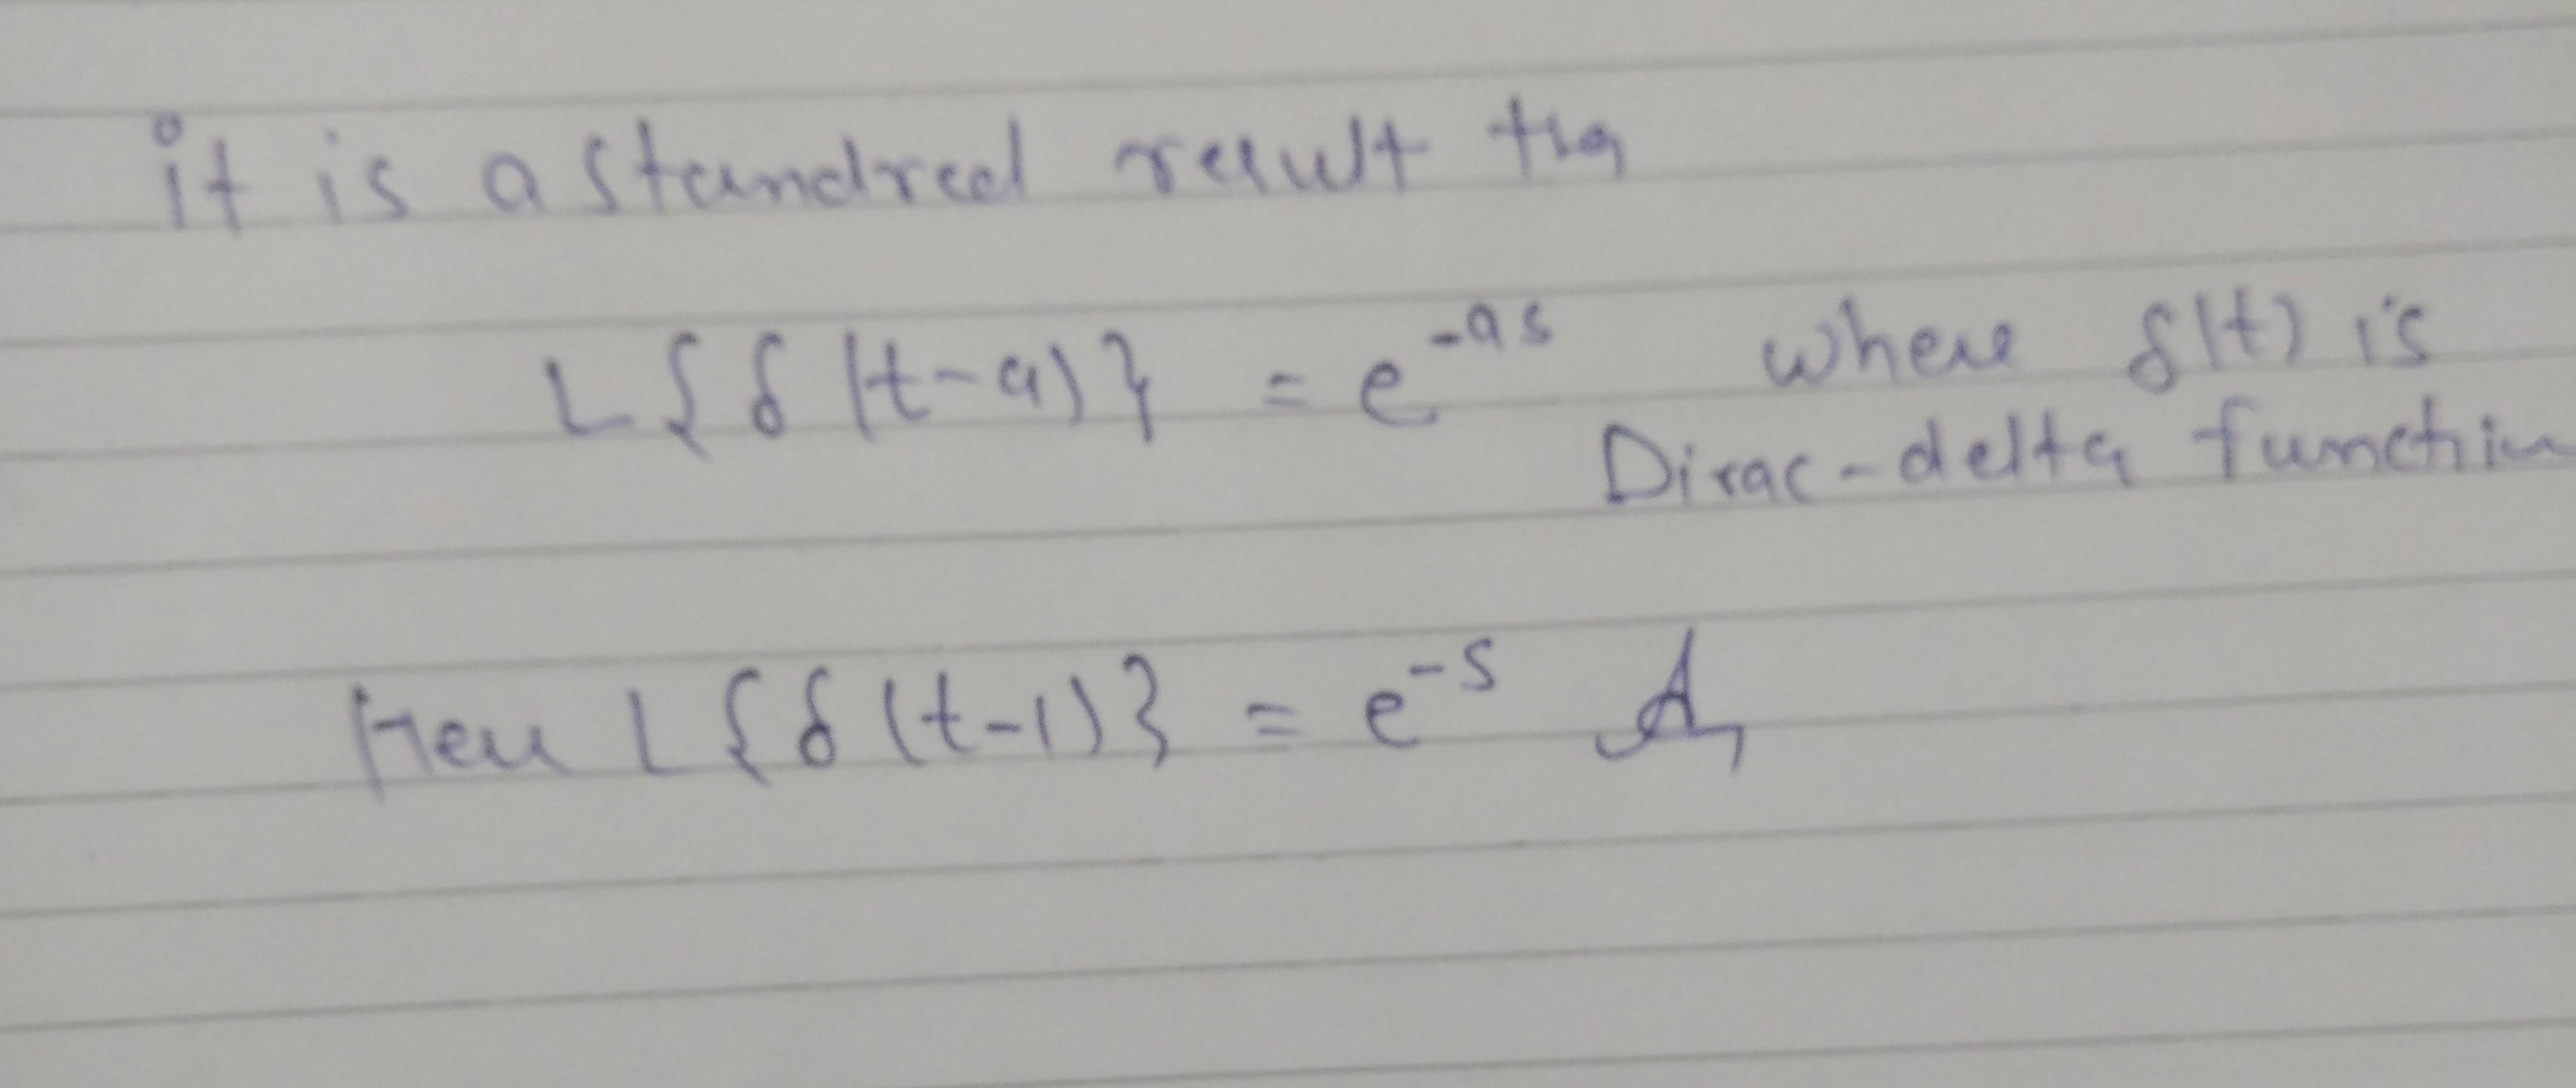 it is a standred result tha
L{δ(t-a)} = e^{-as} where δ(t) is
Dirac-delta function
Here L{δ(t-1)} = e^{-s}